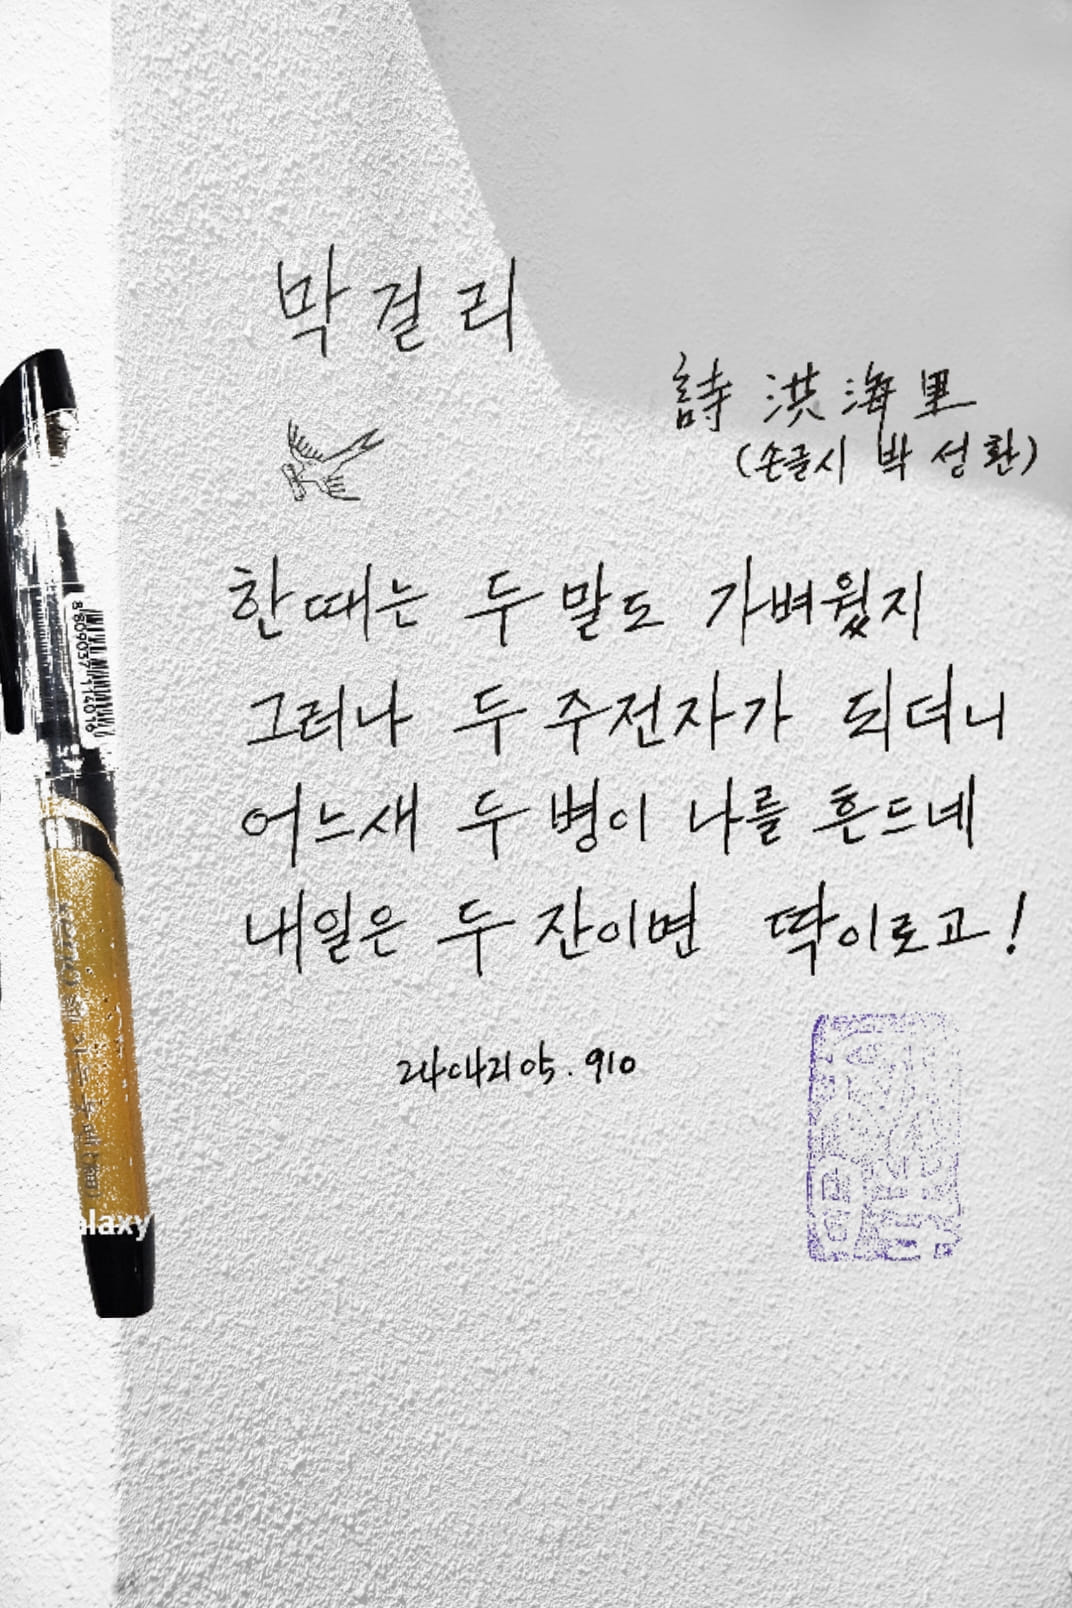 막걸리
詩 洪海里
(손글시 박성환)
한때는 두 말도 가벼웠지
그러나 두 주전자가 되더니
어느새 두 병이 나를 흔드네
내일은 두 잔이면 딱이로고!
8809037114016
alaxy